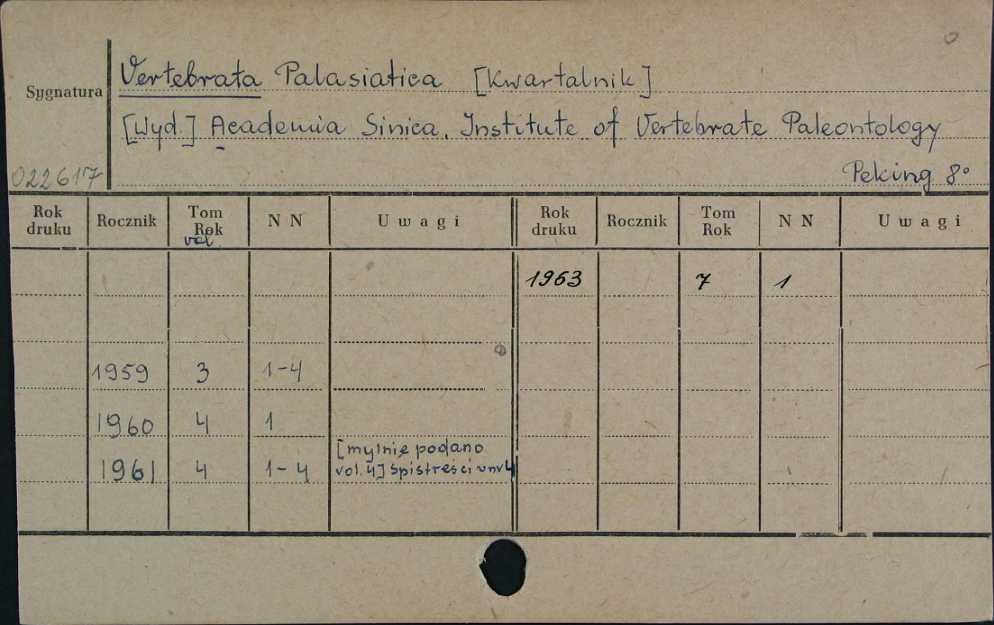 Vertebrata Palasiatica [Kwartalnik]
Sygnatura
[Wyd.] Academia Sinica. Institute of Vertebrate Paleontology
022617
Peking 8°
Rok druku Rocznik Tom Rok vol N N Uwagi Rok druku Rocznik Tom Rok N N Uwagi
1963 7 1
1959 3 1-4
1960 4 1
[mylnie podano
1961 4 1-4 vol. 4] Spis treści w nr 4